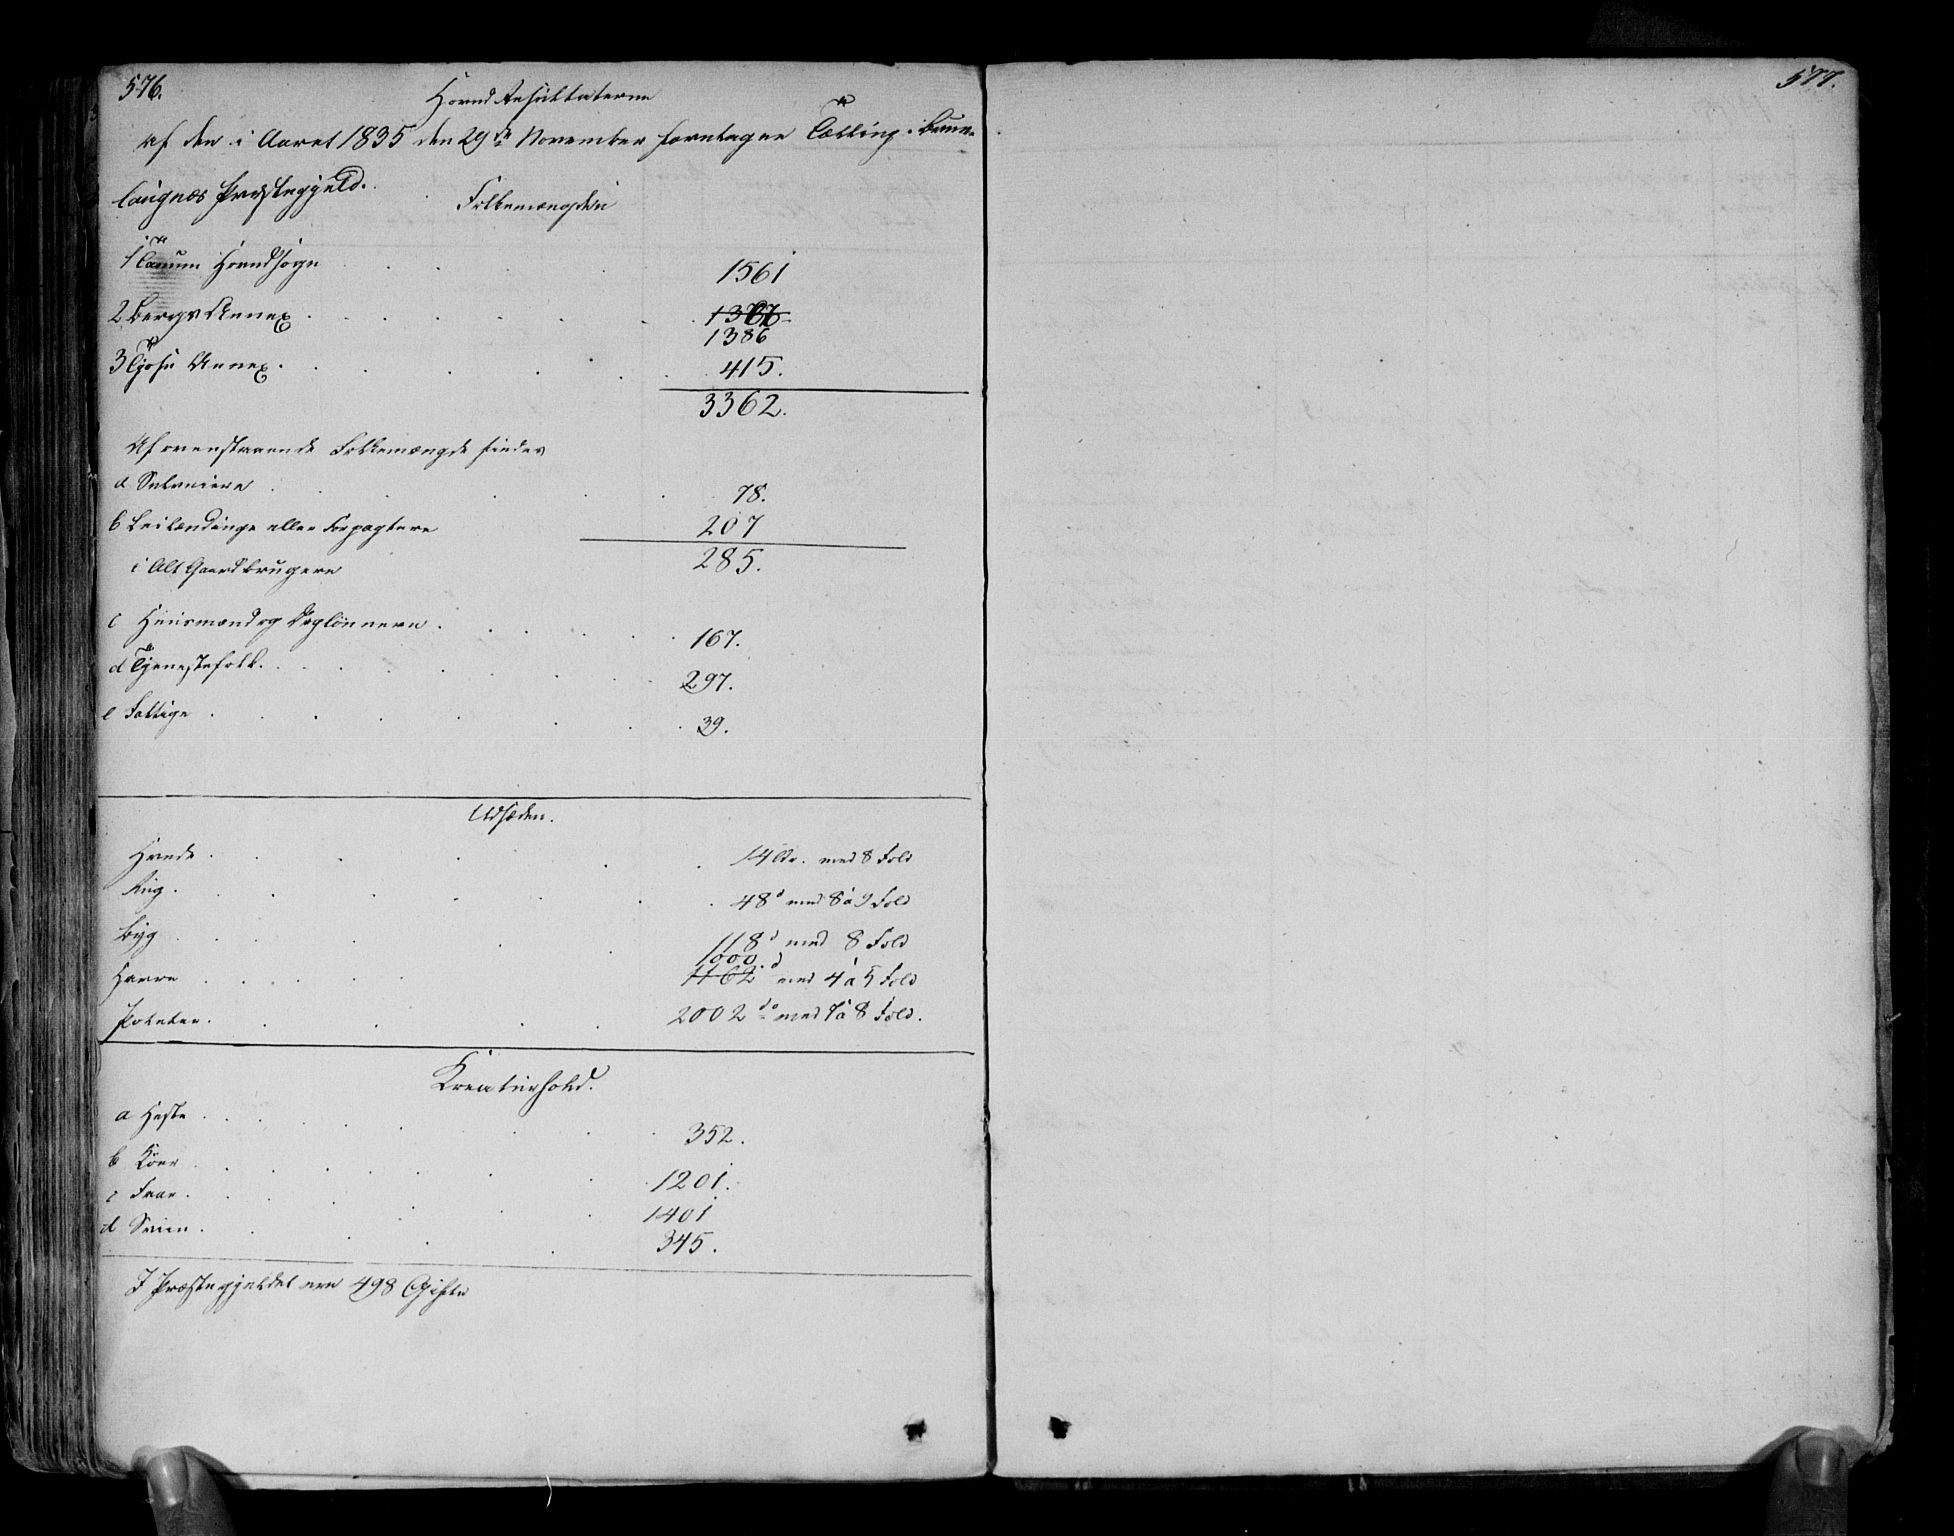 576.
Hoved Resultaterne
af den i Aaret 1835 den 29de November foretagne Tælling i Brun-
laugnæs Præstegjeld.
Folkemængden
1 Tanum Hovedsogn 1561
2 Bergs Annex
1386
3 Tjøse Annex. 415.
3362.
Af ovenstaaende Folkemængde findes
a Selveiere 78.
b Leilændinge eller Forpagtere 207
i Alt Gaardbrugere 285.
c Huusmænd og Daglønnere. 167.
d Tjenestefolk. 297.
e Fattige 39.
Udsæden.
Hvede 14 Tdr. med 8 Fold
Rug. 48 d med 8 à 9 Fold
Byg 118 d med 8 Fold
1000 d
Havre 1162 med 4 à 5 Fold
Poteter. 2002 do med 7 à 8 Fold.
Kreaturhold.
a Heste 352.
b Køer 1201.
c Faar. 1401
d Sviin. 345.
I Præstegjeldet ere 498 Gifte
577.